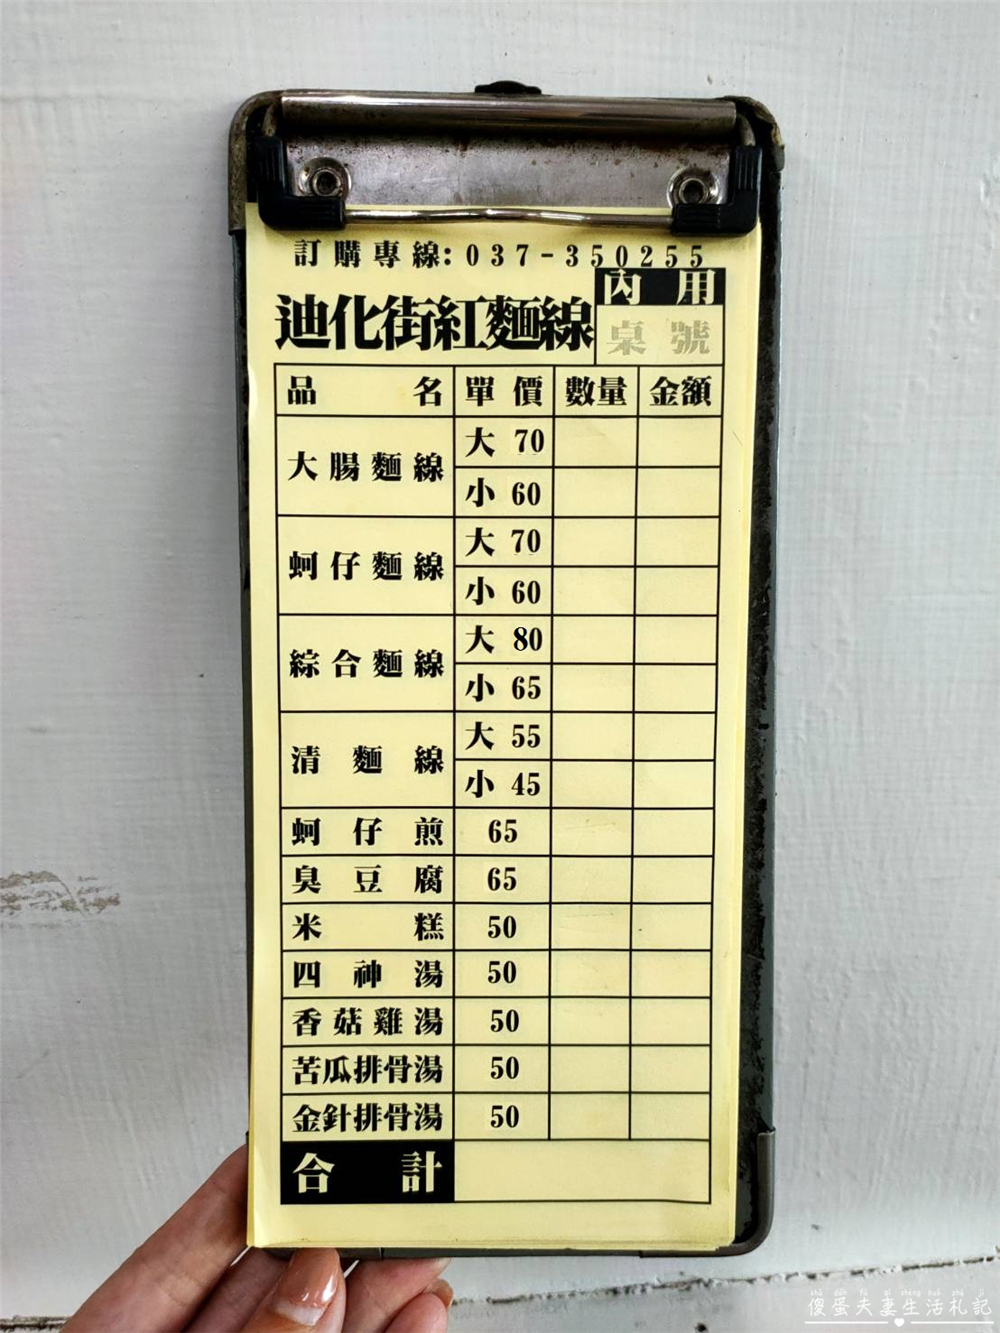 訂購專線:037-350255
內用
迪化街紅麵線
桌號
品名 單價 數量 金額
大腸麵線 大 70
小 60
蚵仔麵線 大 70
小 60
綜合麵線 大 80
小 65
清麵線 大 55
小 45
蚵仔煎 65
臭豆腐 65
米糕 50
四神湯 50
香菇雞湯 50
苦瓜排骨湯 50
金針排骨湯 50
合計
傻蛋夫妻生活札記